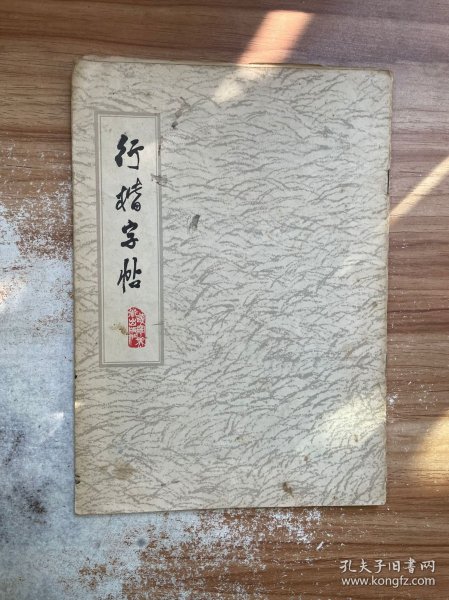 行楷字帖
孔夫子旧书网
www.kongfz.com